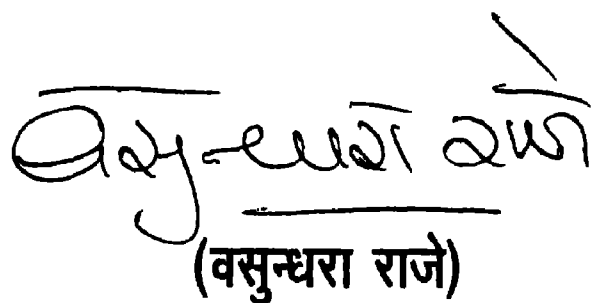 वसुन्धरा राजे
(वसुन्धरा राजे)